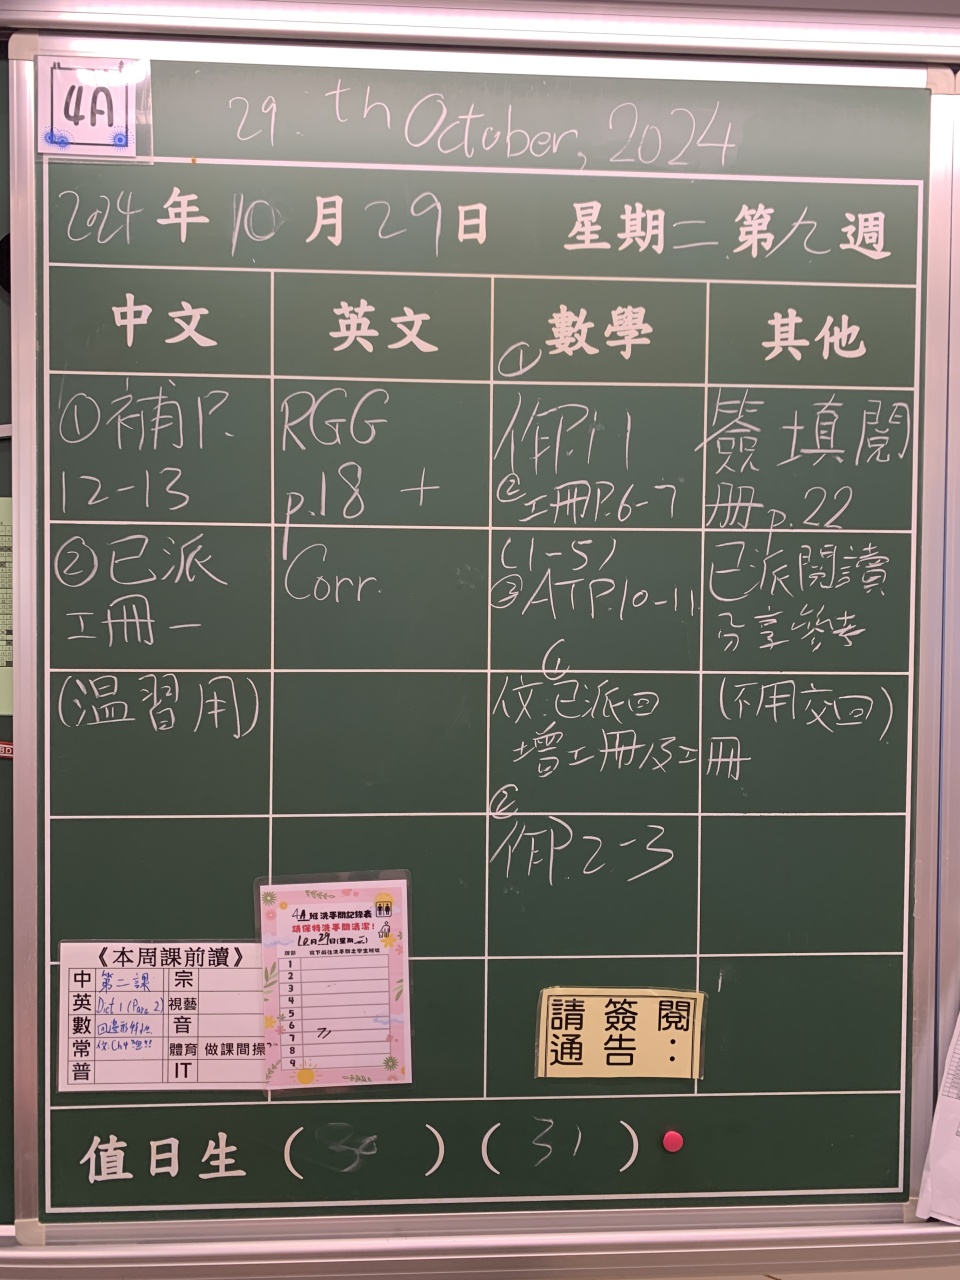 4A
29.th October, 2024
2024年10月29日 星期二 第九週
中文 英文 數學 其他
①補P.
12-13
②已派
工冊一
(溫習用)
RGG
p.18 +
Corr.
①
作P.11
②工冊P.6-7
(1-5)
③ATP.10-11
①
仪:已派回
增工冊及工冊
②
作P.2-3
簽填閱
冊p.22
已派閱讀
分享參考
(不用交回)
《本周課前讀》
中 第二課 宗
英 Dict 1 (Para 2) 視藝
數 音
常 體育 做課間操
普 IT
4A班洗手間記錄表
請保持洗手間清潔!
10月29日(星期二)
1
2
3
4
5
6
7
8
9
請簽閱
通告:
值日生 (30) (31)